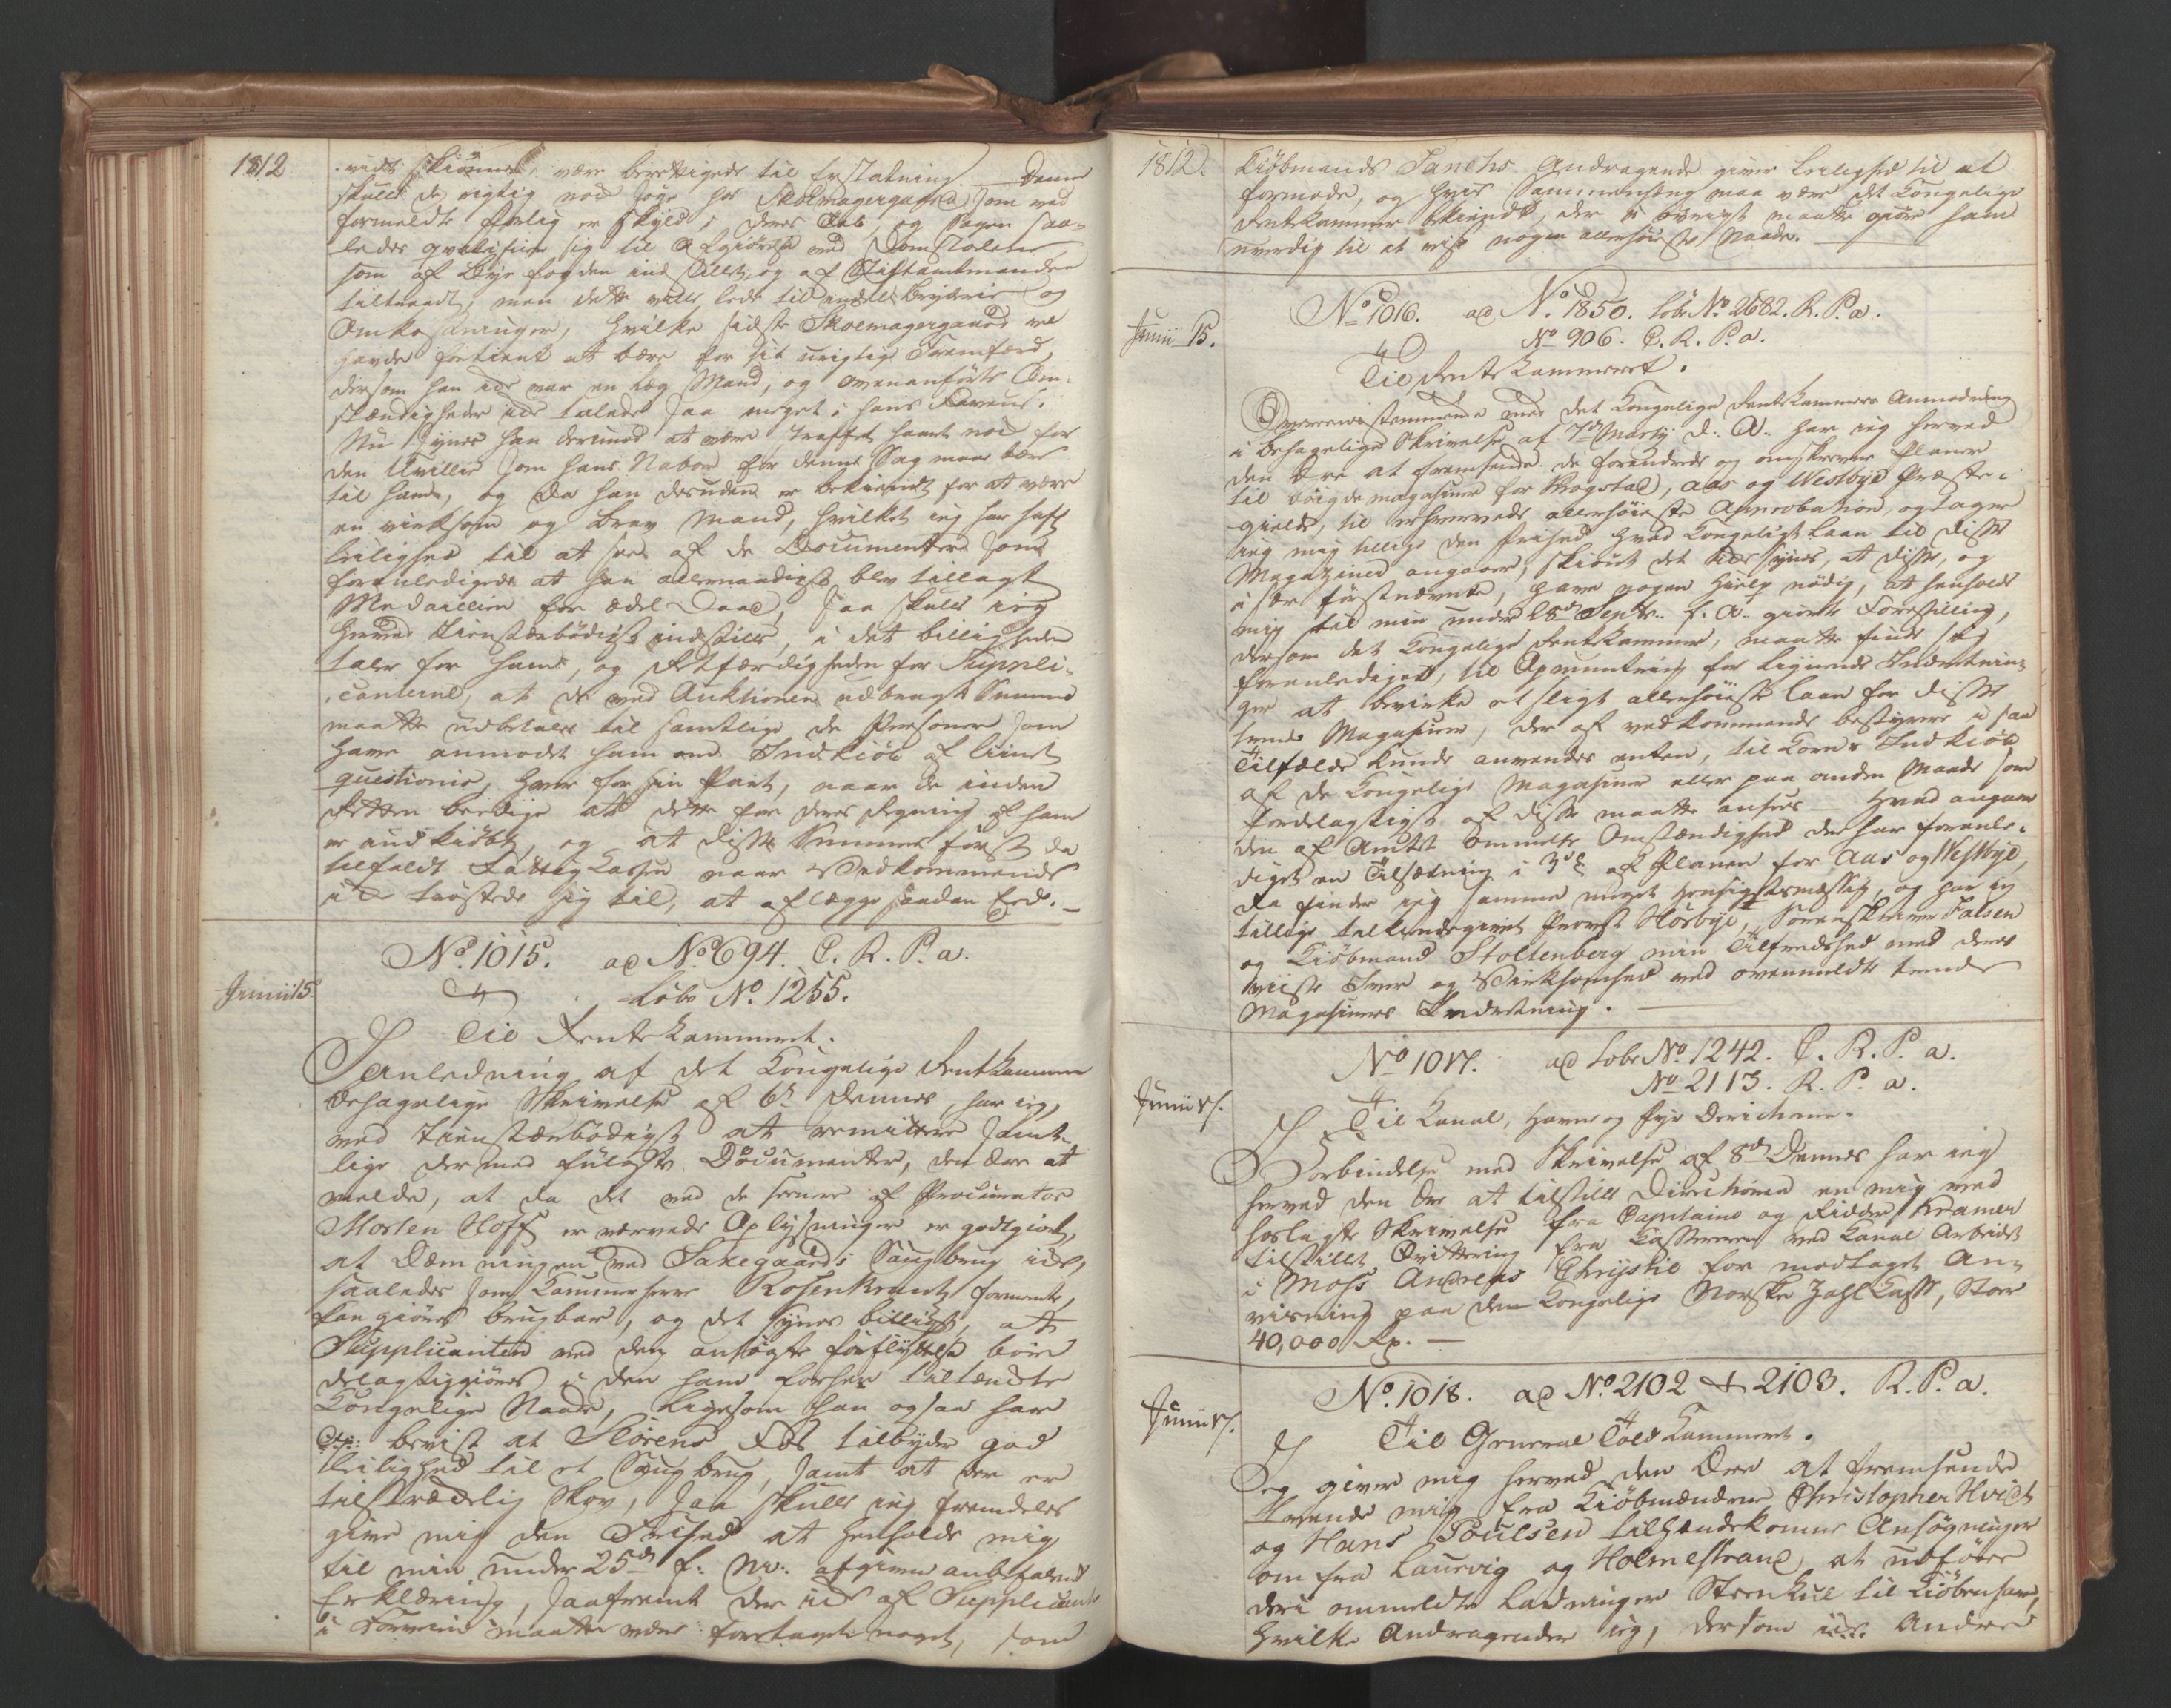 1812
vidt skiønnes, være berettigede til Erstatning. Denne
skulde de rigtig nok søge hos Skolmagergaard som ved
formeldte Færlig er Skyld i deres Tab, og Sagen saa-
ledes qvalificere sig til Afgiørelse ved Domstolene
som af Bye fogden indstillet, og af Stiftamtmanden
tiltraadt, men dette ville lede til endeel Bryderie og
Omkostninger, hvilke sidste Skoemagergaard vel
havde fortient at bære for sit urigtige Fremfærd,
dersom han ikke var en læg Mand, og ovenanførte Om-
stændigheder ikke talede saa meget i hans Faveur.
Nu synes han derimod at være straffet haardt nok for
den Uvillie som hans Naboer for denne Sag maae bære
til ham, og da han desuden er bekiendt for at være
en virksom og brav Mand, hvilket jeg har haft
Leilighed til at see af de Documenter som
foranledigede at han allernaadigst blev tillagt
Medaillen for ædel Daad, saa skulle jeg
herved tienstærbødigst indstille, i det billigheden
taler for ham, og Retfærdigheden for Suppli-
canterne, at de ved Auktionen udbragte Summe
maatte udbetales til samtlige de Personer som
have anmodet ham om Indkiøb af Linet
questionis, hver for sin Part, naar de inden
Retten beedige at dette for deres Regning af ham
er indkiøbt, og at disse Summer først da
tilfaldt Fattig Kassen naar Vedkommende
ikke trøstede sig til, at aflægge saadan Eed.
No. 1015. ad No. 694. C. R. P. a.
Løbe No. 1255.
Junii 15.
Til Rentekammeret.
I Anledning af det Kongelige Rentekammers
behagelige Skrivelse af 6te dennes, har jeg,
ved tienstærbødigst at remittere samt-
lige dermed fulgte Documenter, den Ære at
melde, at da det ved de senere af Procurator
Morten Hoff erværvede Oplysninger er godtgiort,
at Dæmningen ved Sakegaards Saugbrug ikke,
saaledes som Kammerherre Rosenkrantz formente,
kan giøres brugbar, og det synes billigt, at
Supplicanten ved den ansøgte Forflyttelse bør
delagtiggiøres i den ham forhen tiltænkte
Kongelige Naade, ligesom han ogsaa har
beviist at Storens Fos tilbyder god
Leilighed til et Saugbrug, samt at der er
tilstrækkelig Skov, saa skulle jeg fremdeles
give mig den Frihed at henholde mig
til min under 25de f: M: afgivne anbefalende
Erklæring, saafremt der ikke af Supplicanten
i Forveien maatte være foretaget noget, som
1812.
Kiøbmands Tanchs Andragende giver Leilighed til at
formode, og hvis Sammenhæng maa være det Kongelige
Rentekammer bekiendt, der i øvrigt maatte giøre ham
uværdig til at nyde nogen allerhøieste Naade.
No 1016. ad No. 1850. Løbe No 2682. R. P. a.
No 906. C. R. P. a.
Junii 15.
Til Rentekammeret.
Overeensstemmende med det Kongelige Rentekammers Anmodning
i behagelige Skrivelse af 7de Martij d: A: har jeg herved
den Ære at fremsende de forandrede og omskrevne Planer
til Bøigdemagasiner for Krogstad, Aas og Westbye Præste-
gielde, til erhvervede allerhøieste Approbation, og tager
jeg mig tillige den Frihed hvad Kongeligt Laan til disse
Magaziner angaaer, skiønt det ikke synes, at disse, og
i sær førstnævnte, have nogen Hielp nødig, at henholde
mig til min under 28de Septbr. f. A. giorte Forestilling,
dersom det Kongelige Rentekammer, maatte finde sig
foranlediget, til Opmuntring for lignende Indretnin-
ger at bevirke et sligt allerhøieste Laan for disse
trende Magasiner, der af vedkommende bestyrere i saa
Tilfælde kunde anvendes enten, til Korns Indkiøb
af de Kongelige Magasiner eller paa anden Maade som
fordelagtigst af disse maatte ansees — Hvad angaaer
den af Amtet ommeldte Omstændighed der har foranle-
diget en Tilsætning i 3de § af Planen for Aas og Westbye,
da finder jeg samme meget hensigtsmæssig, og har jeg
tillige tilkiendegivet Provst Horbye, Sorenskriver Falsen
og Kiøbmand Stoltenberg min Tilfredshed med deres
viiste Iver og Virksomhed ved ovenmeldte trende
Magasiners Indretning. —
No 1017. ad Løbe No. 1242. C. R. P. a.
No 2113. R. P. a.
Junii 15.
Til Canal, Havne og Fyr Directionen.
I Forbindelse med Skrivelse af 8de Dennes har jeg
herved den Ære at tilstille Directionen en mig med
hoslagte Skrivelse fra Capitaine og Ridder Kramer
tilstillet Qvittering fra Kassereren ved Canal Arbeidet
i Moss Andreas Chrystie for modtaget An-
visning paa den Kongelige Norske Zahl Casse, stor
40,000 Rp. —
No. 1018. ad No. 2102 & 2103. R. P. a.
Junii 15.
Til General Told Kammeret.
Jeg giver mig herved den Ære at fremsende
tvende mig fra Kiøbmændene Christopher Hvidt
og Hans Poulsen tilhændekomne Ansøgninger
om fra Laurvig og Holmestrand at udføre
deri ommeldte Ladninger Steenkul til Kiøbenhavn,
hvilke Andragender jeg, dersom ikke Andre